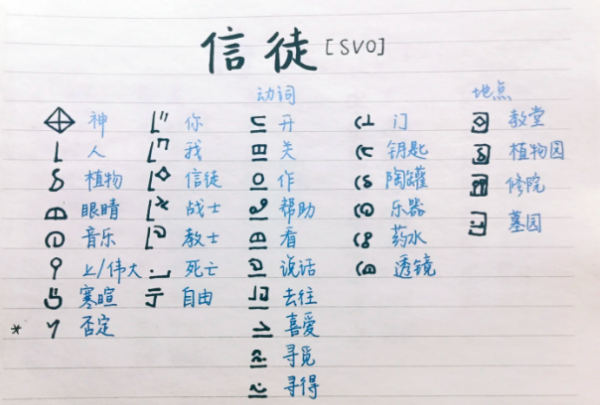 信徒 [SVO]
动词 地点
神 你 开 门 教堂
人 我 关 钥匙 植物园
植物 信徒 作 陶罐 修院
眼睛 战士 帮助 乐器 墓园
音乐 教士 看 药水
上/伟大 死亡 说话 透镜
寒暄 自由 去往
* 否定 喜爱
寻觅
寻得